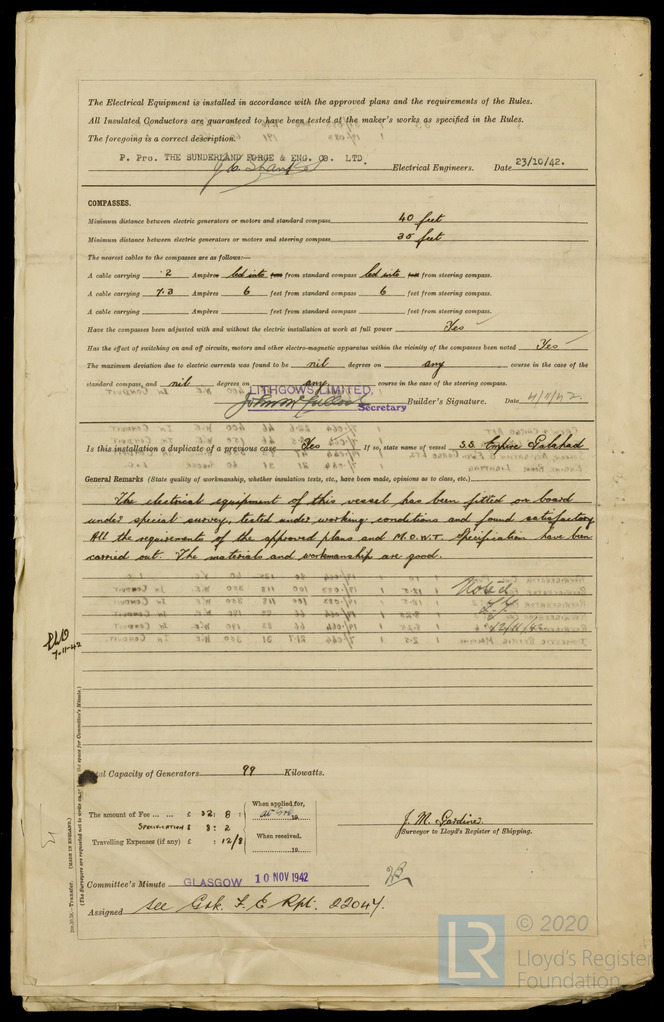 The Electrical Equipment is installed in accordance with the approved plans and the requirements of the Rules.
All Insulated Conductors are guaranteed to have been tested at the maker's works as specified in the Rules.
The foregoing is a correct description.
P. Pro. THE SUNDERLAND FORGE & ENG. Co. LTD. Electrical Engineers. Date 23/10/42.
COMPASSES.
Minimum distance between electric generators or motors and standard compass 40 feet
Minimum distance between electric generators or motors and steering compass 35 feet
The nearest cables to the compasses are as follows:—
A cable carrying .2 Ampères led into feet from standard compass led into feet from steering compass.
A cable carrying 7.3 Ampères 6 feet from standard compass 6 feet from steering compass.
A cable carrying Ampères feet from standard compass feet from steering compass.
Have the compasses been adjusted with and without the electric installation at work at full power Yes
Has the effect of switching on and off circuits, motors and other electro-magnetic apparatus within the vicinity of the compasses been noted Yes
The maximum deviation due to electric currents was found to be nil degrees on any course in the case of the
standard compass, and nil degrees on any course in the case of the steering compass.
LITHGOWS LIMITED,
Secretary Builder's Signature. Date 4/11/42
Is this installation a duplicate of a previous case Yes If so, state name of vessel S.S. Empire Galahad
General Remarks (State quality of workmanship, whether insulation tests, etc., have been made, opinions as to class, etc.)
The electrical equipment of this vessel has been fitted on board
under special survey, tested under working conditions and found satisfactory
All the requirements of the approved plans and M.O.W.T. specification have been
carried out. The materials and workmanship are good.
Noted
12/11/42
7-11-42
Total Capacity of Generators 99 Kilowatts.
The amount of Fee ... ... £ 32 : 8 :
SPECIFICATION £ 8 : 2
Travelling Expenses (if any) £ : 12/8
When applied for,
19
When received.
19
J. M. Gardiner
Surveyor to Lloyd's Register of Shipping.
Committee's Minute GLASGOW 10 NOV 1942
Assigned See Gsk. F. E Rpt. 22047.
Transfer. (MADE IN ENGLAND.)
(The Surveyors are requested not to write on or the space for Committee's Minute.)
LR
© 2020
Lloyd's Register
Foundation